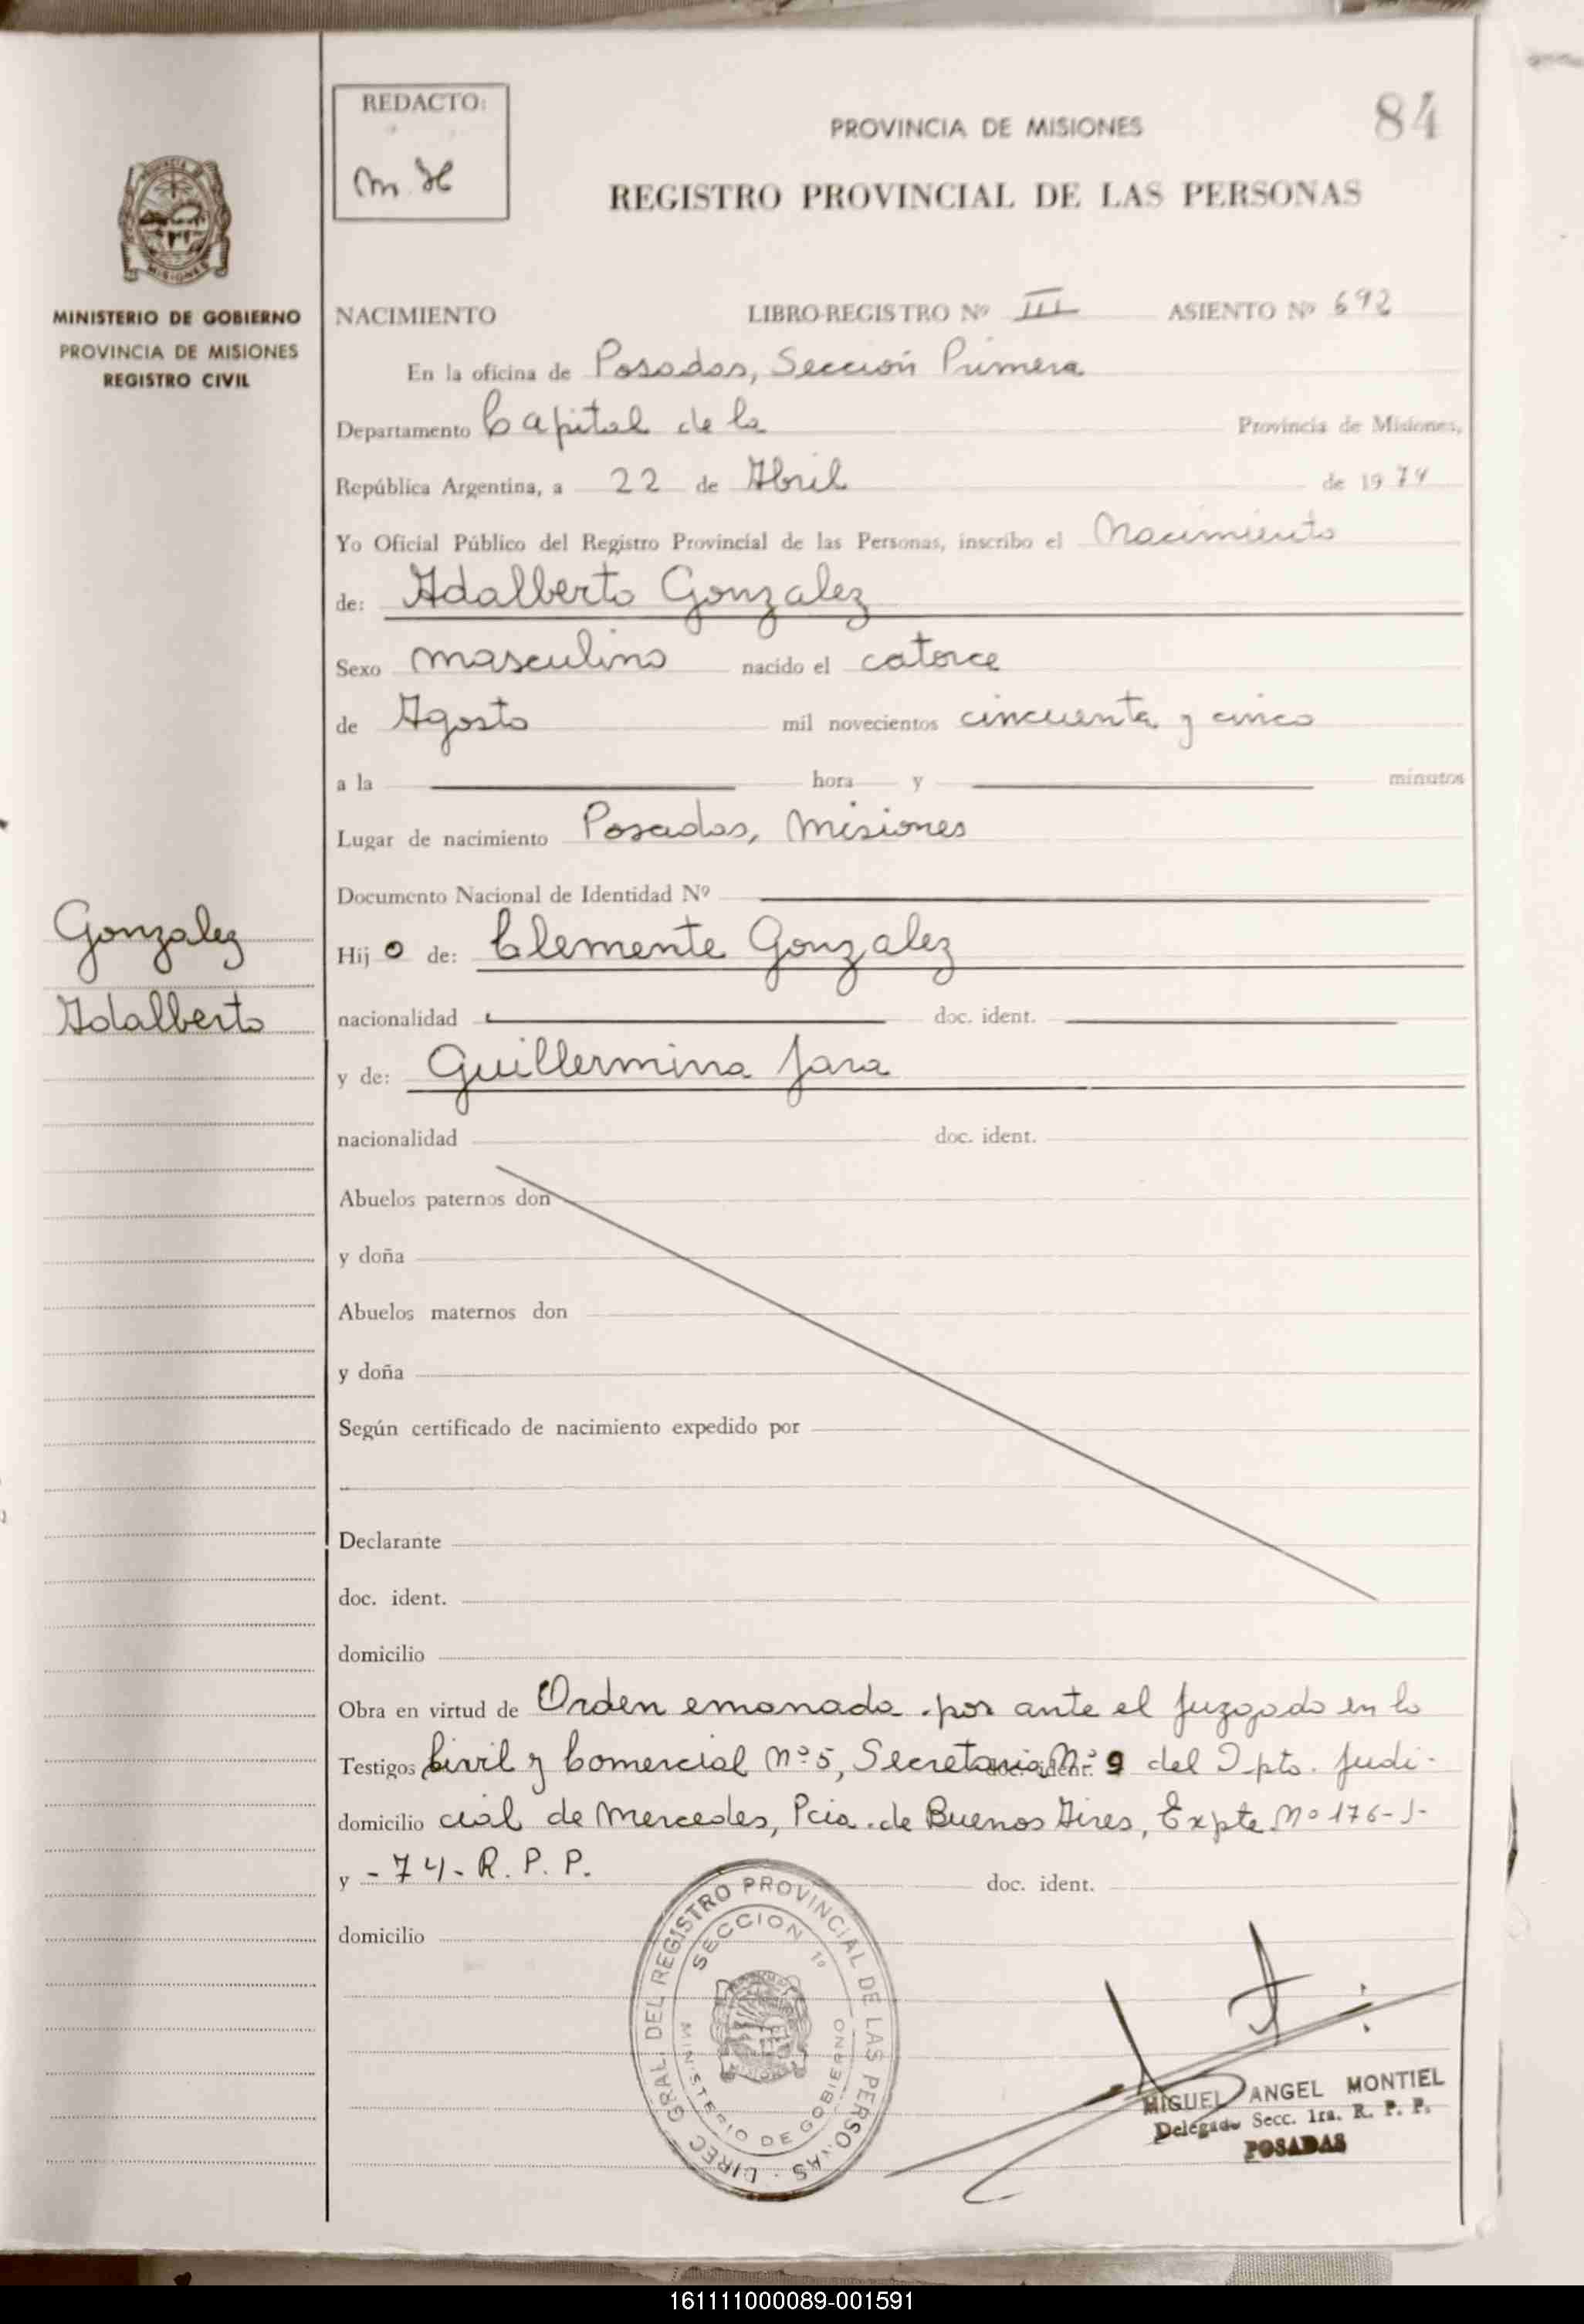 REDACTO:
PROVINCIA DE MISIONES
84
REGISTRO PROVINCIAL DE LAS PERSONAS
MINISTERIO DE GOBIERNO
PROVINCIA DE MISIONES
REGISTRO CIVIL
NACIMIENTO LIBRO-REGISTRO Nº III ASIENTO Nº 692
En la oficina de Posadas, Sección Primera
Departamento Capital de la Provincia de Misiones,
República Argentina, a 22 de Abril de 1974
Yo Oficial Público del Registro Provincial de las Personas, inscribo el Nacimiento
de: Adalberto Gonzalez
Sexo masculino nacido el catorce
de Agosto mil novecientos cincuenta y cinco
a la hora y minutos
Lugar de nacimiento Posadas, Misiones
Documento Nacional de Identidad Nº
Gonzalez
Adalberto
Hijo de: Clemente Gonzalez
nacionalidad doc. ident.
y de: Guillermina Jara
nacionalidad doc. ident.
Abuelos paternos don
y doña
Abuelos maternos don
y doña
Según certificado de nacimiento expedido por
Declarante
doc. ident.
domicilio
Obra en virtud de Orden emanada por ante el Juzgado en lo
Testigos Civil y Comercial Nº 5, Secretaria Nº 9 del Dpto. Judi-
domicilio cial de Mercedes, Pcia. de Buenos Aires, Expte. Nº 176-J-
y -74- R. P. P. doc. ident.
domicilio
DIREC. GRAL. DEL REGISTRO PROVINCIAL DE LAS PERSONAS
SECCION 1º
MINISTERIO DE GOBIERNO
MIGUEL ANGEL MONTIEL
Delegado Secc. 1ra. R. P. P.
POSADAS
161111000089-001591